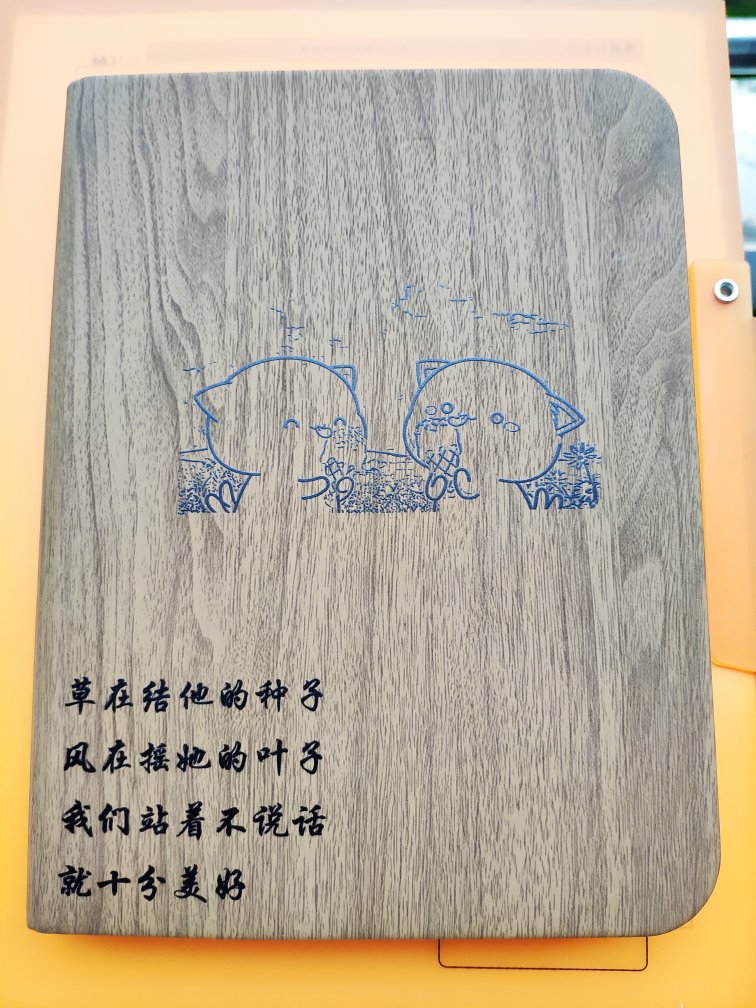 草在结他的种子
风在摇她的叶子
我们站着不说话
就十分美好